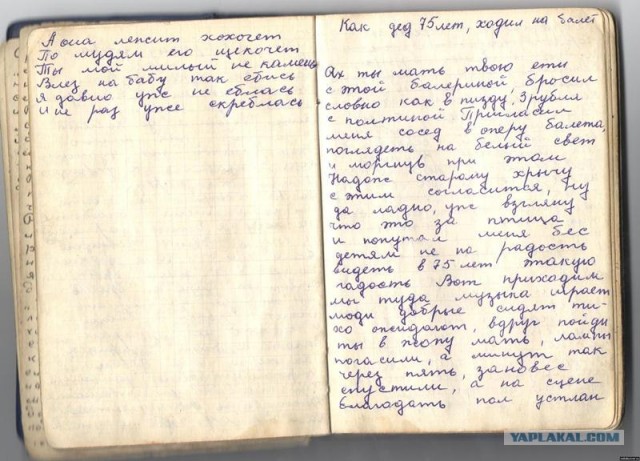 А она лепсит хохочет
По мудям его щекочет
Ты мой милый не камень
Влез на бабу так ебись
Я давно уже не еблась
И не раз уже скреблась
Как дед 75 лет, ходил на балет
Ах ты мать твою ети
с этой балериной, бросил
словно как в пизду, 3 рубля
с полтиной Пригласил
меня сосед в оперу балета,
поглядеть на белый свет
и моргнув при этом
Надоже старому хрычу
с этим согласится, ну
да ладно, уже взгляну
что это за птица
и попутал меня бес
детям не на радость
видеть в 75 лет этакую
гадость Вот приходим
мы туда музыка играет
люди добрые сидят ти-
хо ожидают, вдруг пойди
ты в жопу мать, лампы
погасили, а минут так
через пять, зановес
спустили, а на сцене
благодать пол устлан
YAPLAKAL.COM